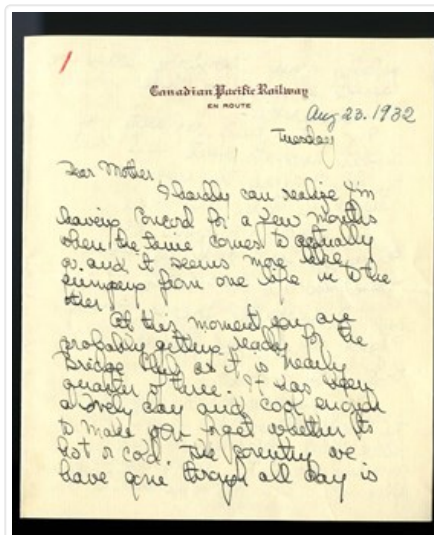 1
Canadian Pacific Railway
EN ROUTE
Aug 23. 1932
Tuesday
Dear Mother,
I hardly can realize I'm
leaving Concord for a few months
when the time comes to actually
go. and it seems more like
jumping from one life into the
other.
At this moment you are
probably getting ready for the
Bridge Club as it is nearly
quarter of three. It has been
a lovely day and cool enough
to make you forget whether its
hot or cold. The country we
have gone through all day is